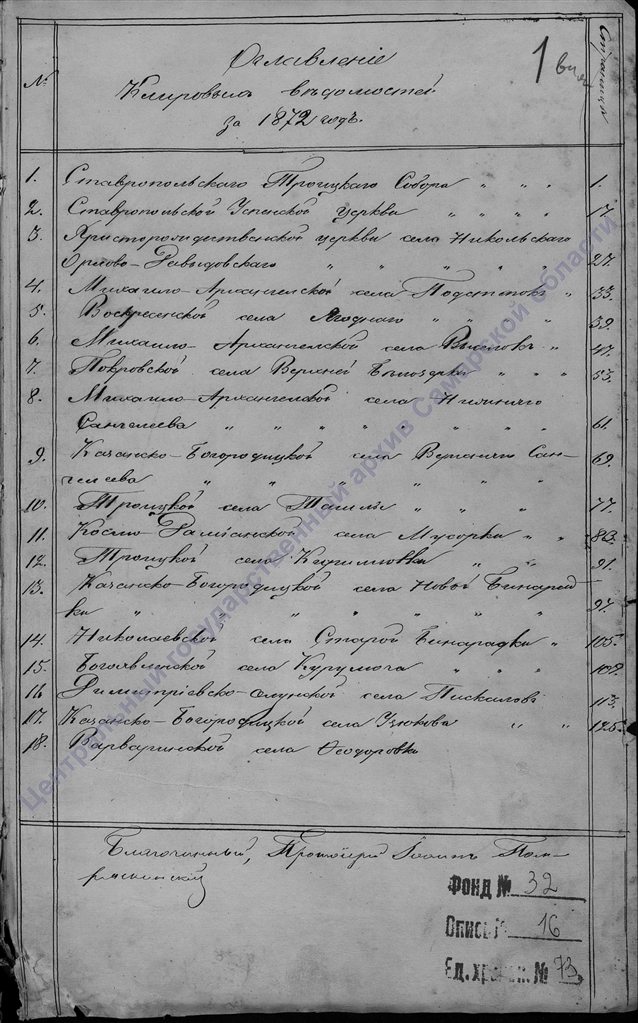 №
Оглавленіе
Клировыхъ вѣдомостей
за 1872 годъ.
Страницы
1
1. Ставропольскаго Троицкаго Собора " " " 1.
2. Ставропольской Успенской церкви " " " " 17.
3. Христорождественской церкви села Никольскаго
Орлово-Давыдовскаго " " " " " 27.
4. Михаило-Архангельской села Подстепокъ " 33.
5. Воскресенской села Ягоднаго " " " " 39.
6. Михаило-Архангельской села Выселокъ " " 47.
7. Покровской села Верхней Бѣлозерки " " " 53.
8. Михаило-Архангельской села Нижняго
Санчелеева " " " " " " " 61.
9. Казанско-Богородицкой села Верхняго Сан-
челеева " " " " " " " 69.
10. Троицкой села Ташлы " " " " 77.
11. Космо-Даміанской села Мусорки " " 83.
12. Троицкой села Кирилловки " " " 91.
13. Казанско-Богородицкой села Новой Бинарад-
ки " " " " " " " 97.
14. Николаевской села Старой Бинарадки " 105.
15. Богоявленской села Курумоча " " " 109.
16 Димитріевско-Селунской села Пискаловъ 113.
17. Казанско-Богородицкой села Узюкова " " 125.
18. Варваринской села Ѳеодоровки
Благочинный, Протоіерей
Фонд № 32
Опись № 16
Ед. хранен. № 73
Центральный государственный архив Самарской области